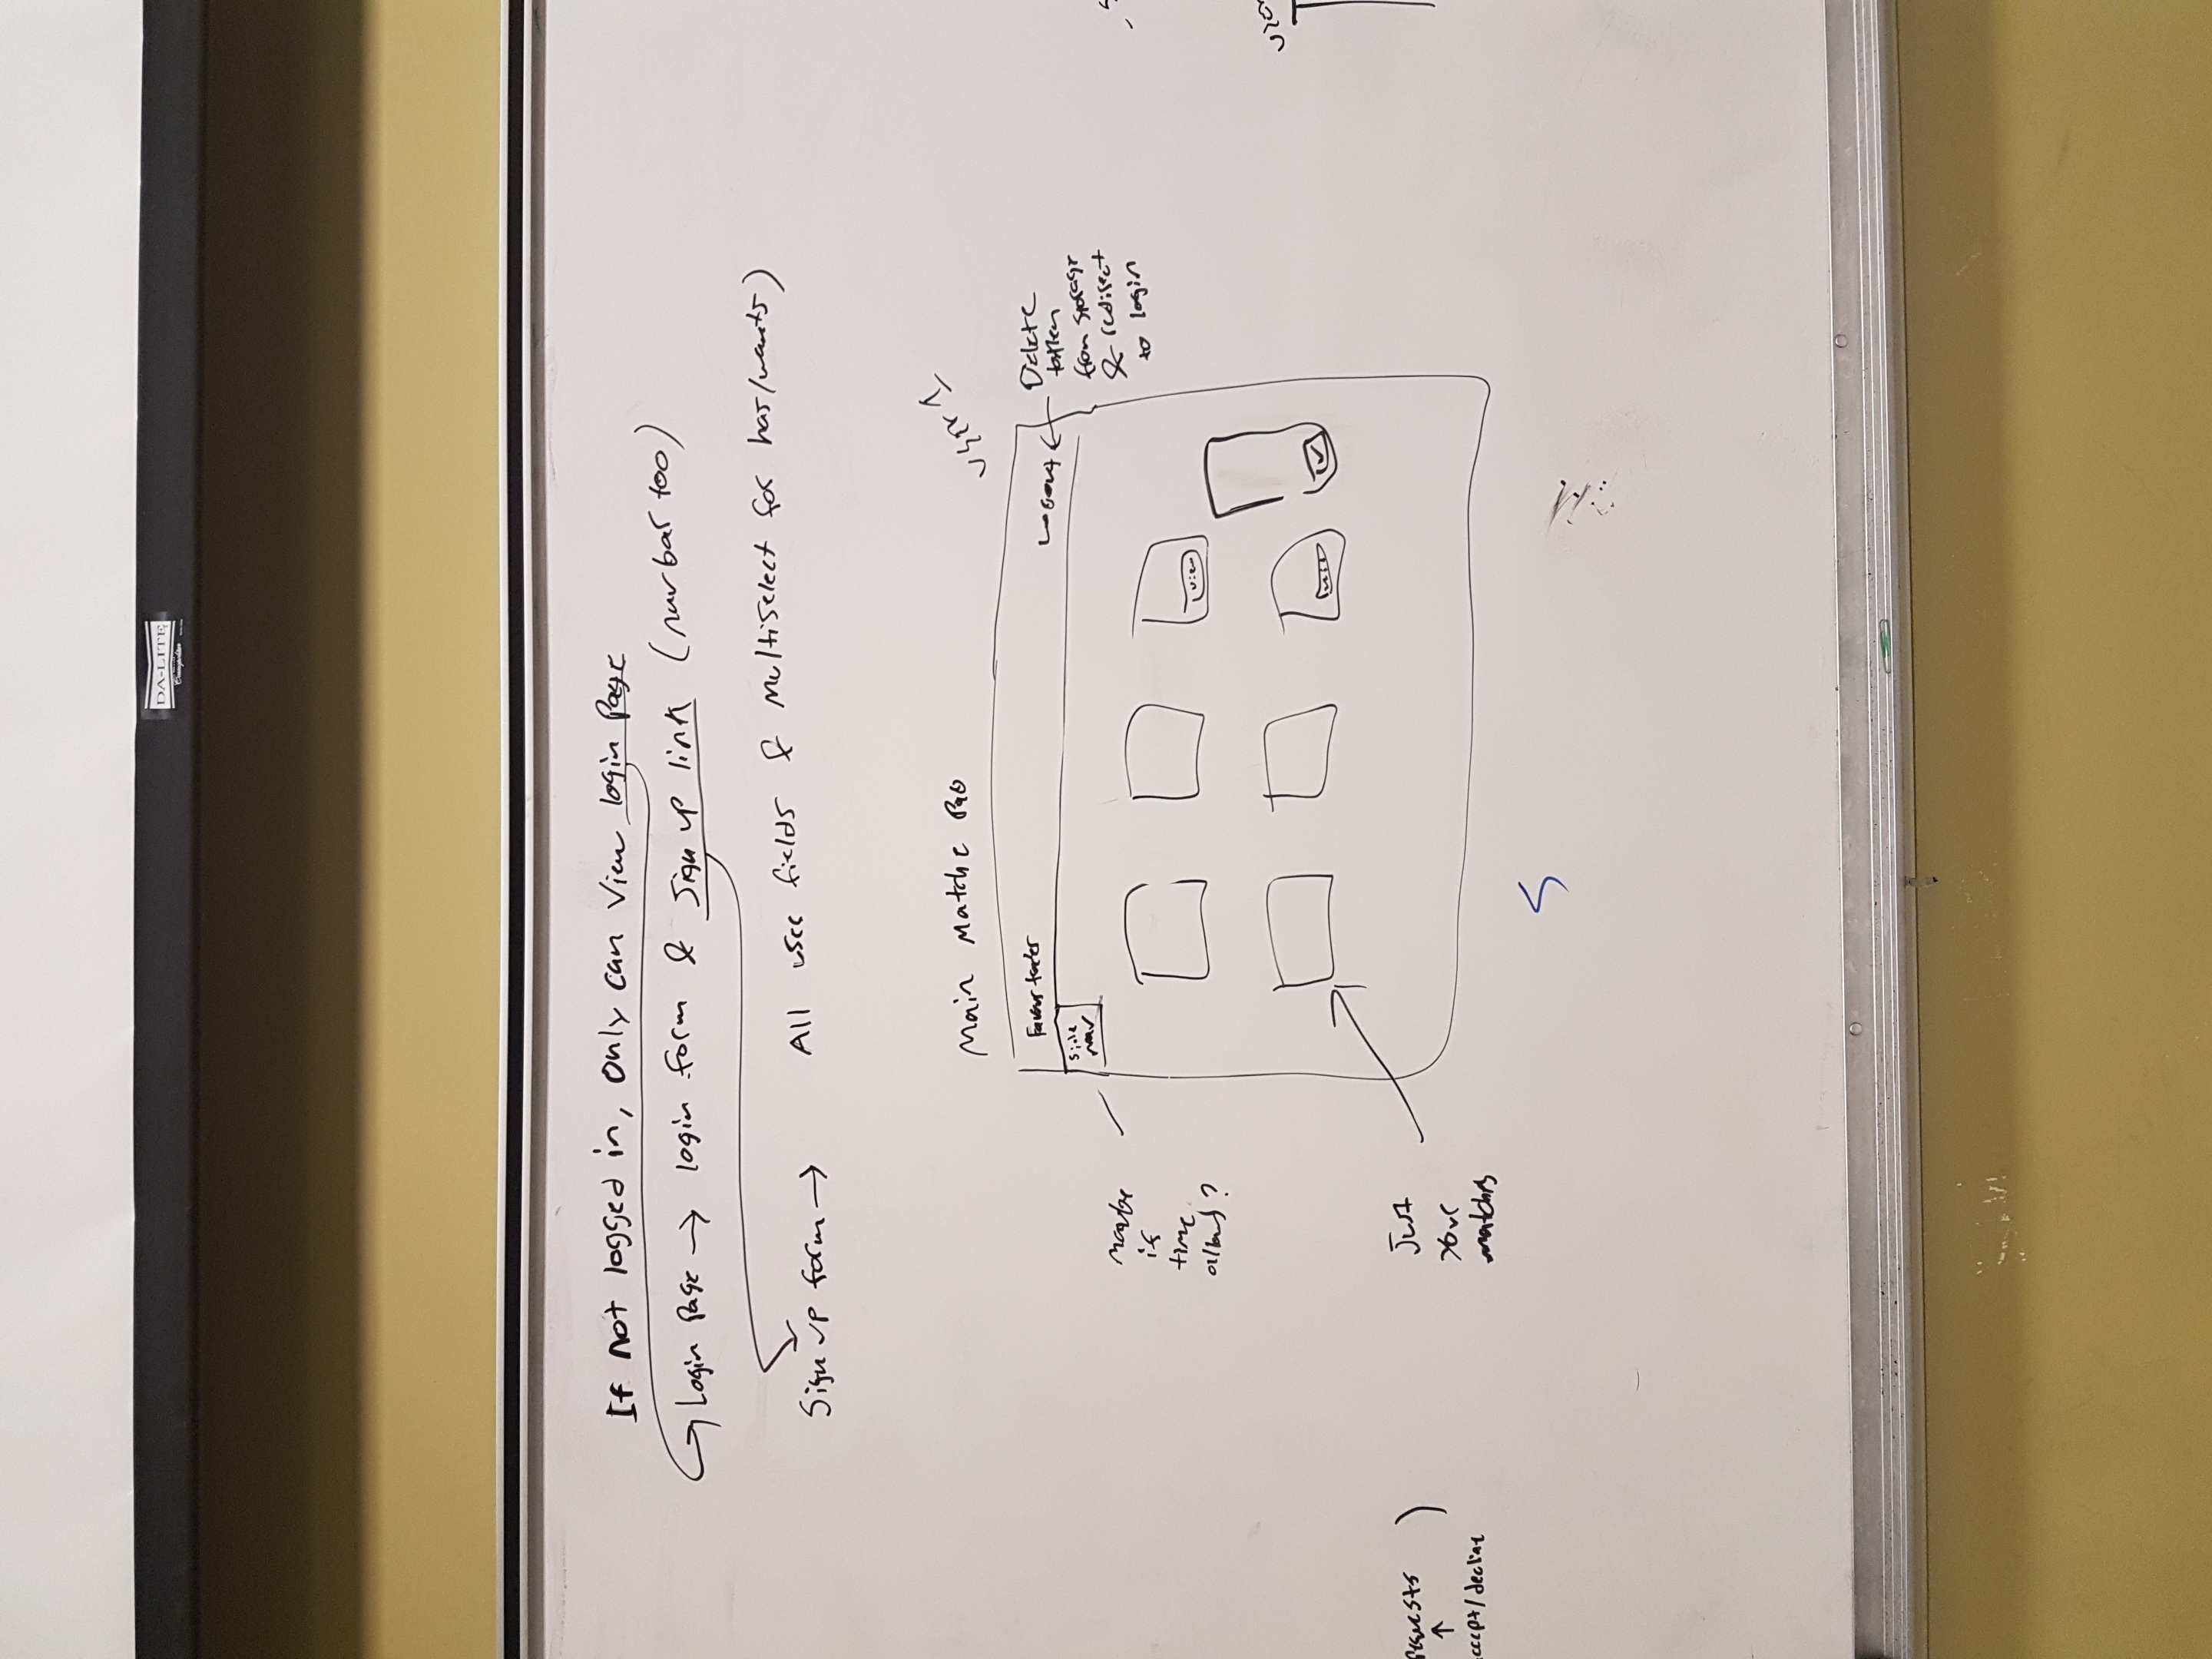 DA-LITE
Cosmopolitan
If not logged in, only can view login page
Login page → login form & sign up link (navbar too)
Sign up form → All user fields & multiselect for has/wants)
Main Matche
user 1
Favour trader
Logout ←
Delete
token
from storage
& redirect
to login
side
nav
maybe
if
time
view
Just
your
matches
accept/decline